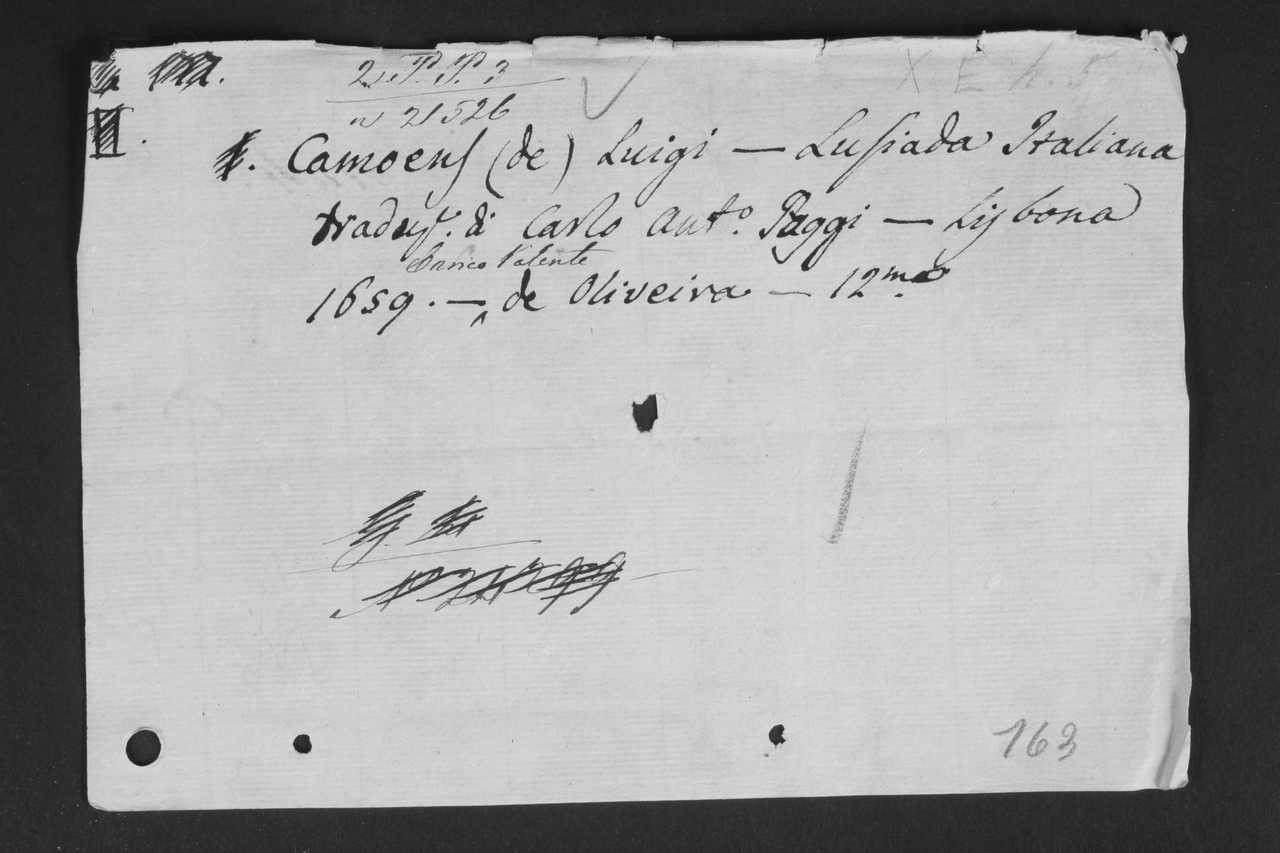 2. P. P. 3
n 21526
X E h. 5
Camoens (de) Luigi — Lusiada Italiana
traduz. di Carlo Ant.o Paggi — Lisbona
Enrico Valente
1659. — de Oliveira — 12mo
163